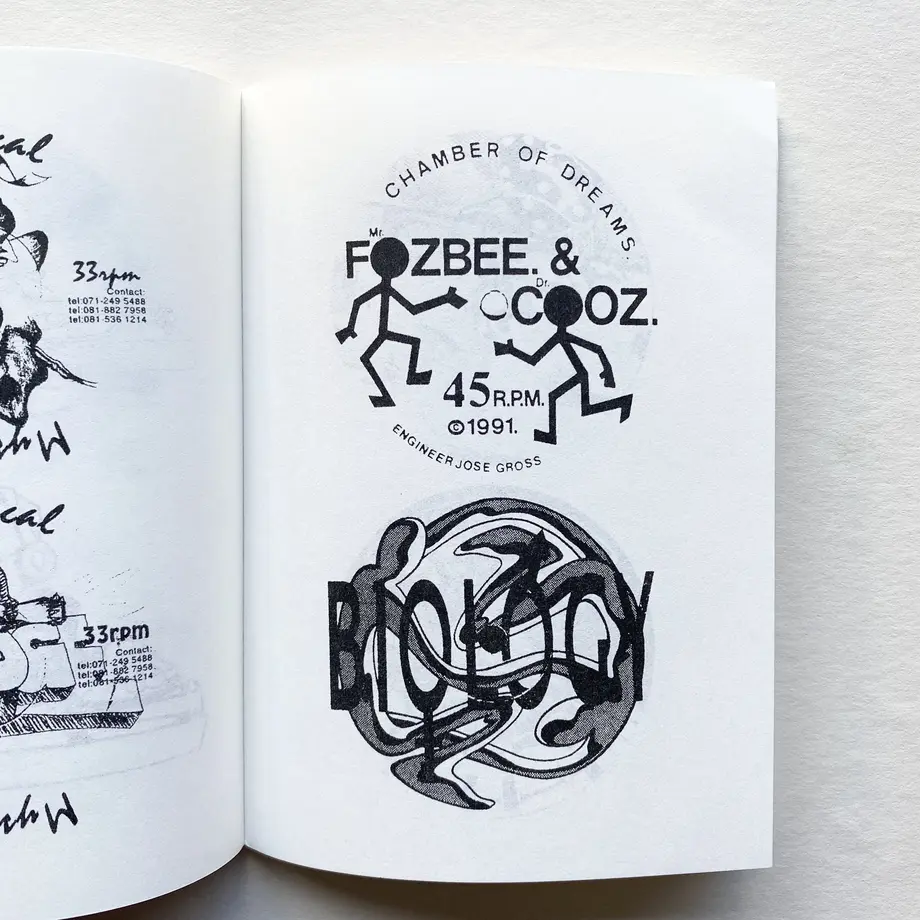 33rpm
Contact:
tel:071-249 5488
tel:081-882 7958
tel:081-536 1214
33rpm
Contact:
tel:071-249 5488
tel:081-882 7958.
tel:081-536 1214
CHAMBER OF DREAMS.
Mr.
FOZBEE. &
Dr.
COOZ.
45 R.P.M.
©1991.
ENGINEER JOSE GROSS
BIOLOGY